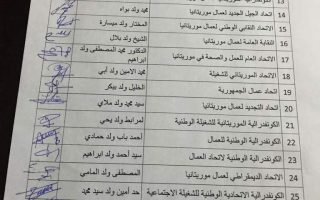 13 الكونفدرالية
14 اتحاد الجيل الجديد لعمال موريتانيا محمد ولد براه
15 الاتحاد النقابي الوطني لعمال موريتانيا المختار ولد ميسارة
16 النقابة العامة لعمال موريتانيا الشيخ ولد بلال
17 الاتحاد العام للعمل والصحة في موريتانيا الدكتور محمد المصطفى ولد ابراهيم
18 الاتحاد الموريتاني للشغيلة محمد الأمين ولد أبي
19 اتحاد عمال الجمهورية الخليل ولد بيكر
20 اتحاد التجديد لعمال موريتانيا سيد محمد ولد ملاي
21 الكونفدرالية الموريتانية للشغيلة الوطنية لمرابط ولد يحي
22 الكونفدرالية الوطنية للعمال أحمد باب ولد حمادي
23 الكونفدرالية الوطنية لاتحاد العمال سيد أحمد ولد ابراهيم
24 الاتحاد الديمقراطي لعمال موريتانيا المصطفى ولد المامي
25 الكونفدرالية الاتحادية الوطنية للشغيلة الاجتماعية أمين ولد سيد محمد